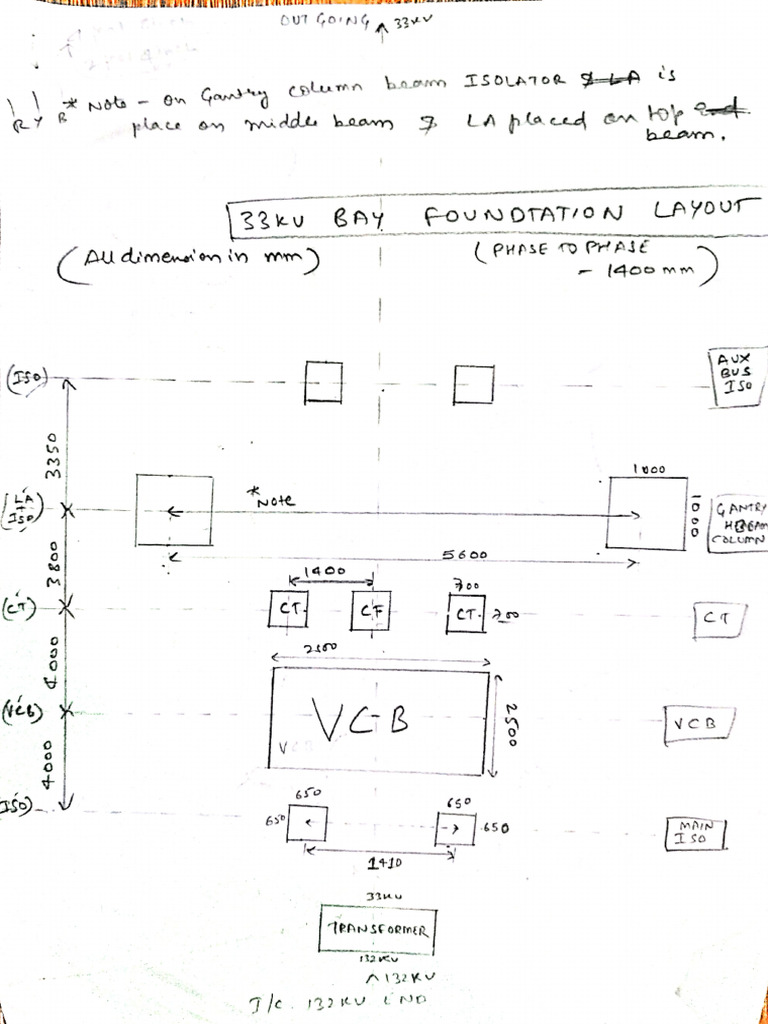 OUT GOING 33KV
* Note - on Gantry column beam ISOLATOR & LA is
R Y B place on middle beam & LA placed on top end.
beam.
33KV BAY FOUNDTATION LAYOUT
(All dimension in mm)
(PHASE TO PHASE
- 1400 mm)
(ISO)
AUX
BUS
ISO
3350
(LA
+
ISO)
* Note
1000
1000
GANTRY
COLUMN
5600
3800
(CT)
1400
CT.
CT
CT.
700
700
CT
4000
2500
(VCB)
VCB
2500
VCB
4000
(ISO)
650
650
650
650
MAIN
ISO
1410
33KV
TRANSFORMER
132KV
132KV
I/C. 132KV LINE